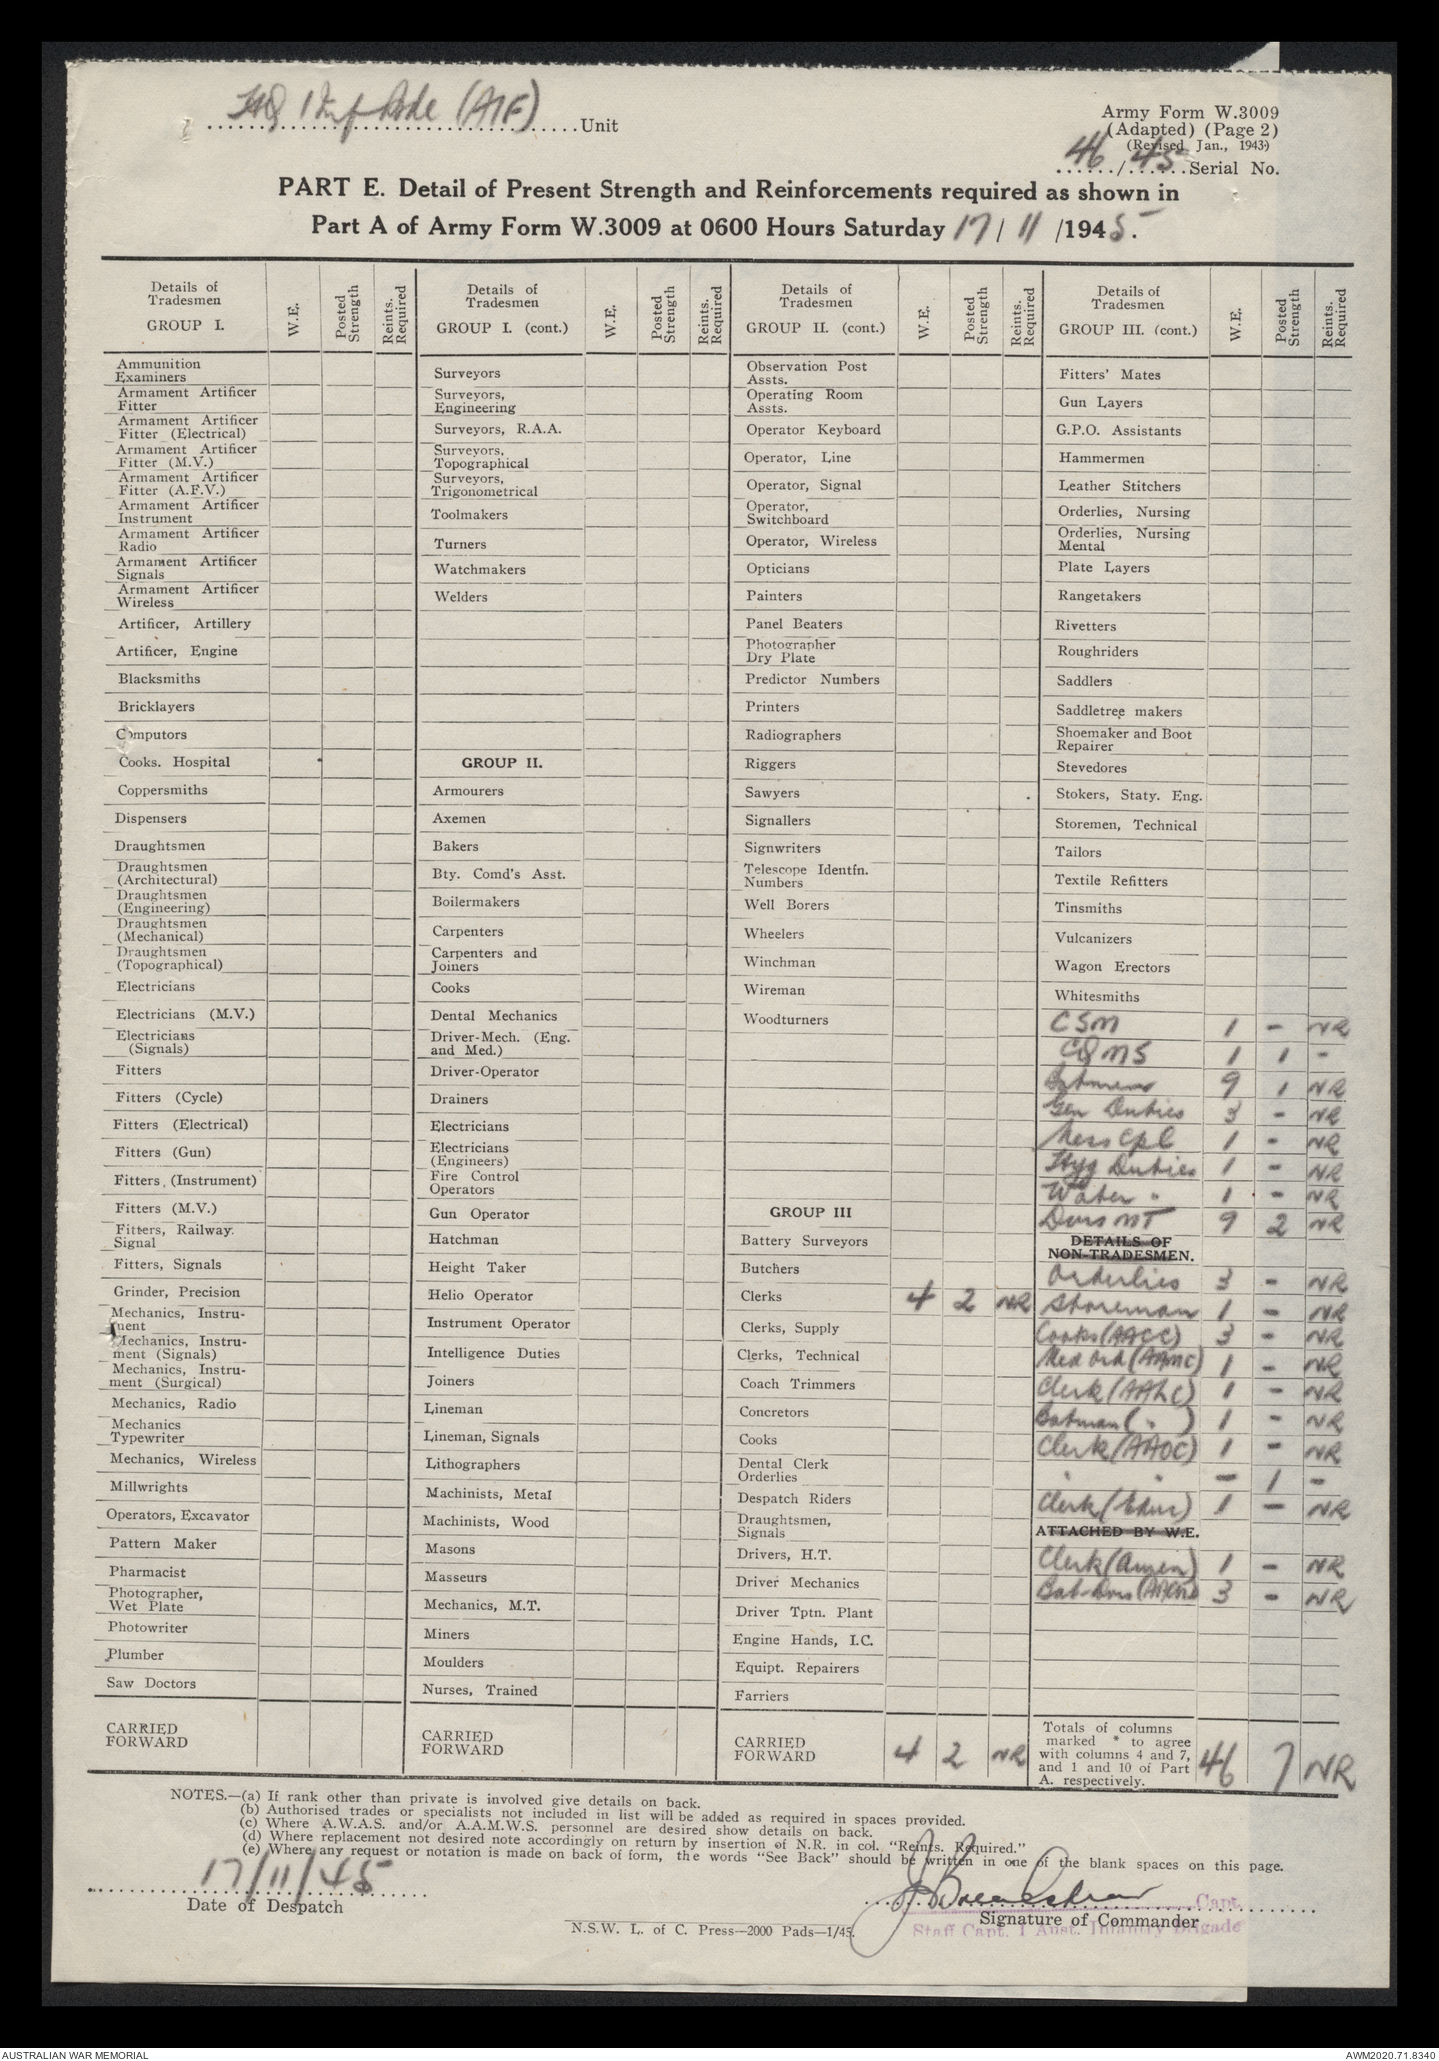 HQ 1 Inf Bde (AIF) Unit
Army Form W.3009
(Adapted) (Page 2)
(Revised Jan., 1943)
46/45 Serial No.
PART E. Detail of Present Strength and Reinforcements required as shown in
Part A of Army Form W.3009 at 0600 Hours Saturday 17/11/1945.
Details of Tradesmen GROUP I. W.E. Posted Strength Reints. Required
Ammunition Examiners
Armament Artificer Fitter
Armament Artificer Fitter (Electrical)
Armament Artificer Fitter (M.V.)
Armament Artificer Fitter (A.F.V.)
Armament Artificer Instrument
Armament Artificer Radio
Armament Artificer Signals
Armament Artificer Wireless
Artificer, Artillery
Artificer, Engine
Blacksmiths
Bricklayers
Computors
Cooks. Hospital
Coppersmiths
Dispensers
Draughtsmen
Draughtsmen (Architectural)
Draughtsmen (Engineering)
Draughtsmen (Mechanical)
Draughtsmen (Topographical)
Electricians
Electricians (M.V.)
Electricians (Signals)
Fitters
Fitters (Cycle)
Fitters (Electrical)
Fitters (Gun)
Fitters, (Instrument)
Fitters (M.V.)
Fitters, Railway. Signal
Fitters, Signals
Grinder, Precision
Mechanics, Instrument
Mechanics, Instrument (Signals)
Mechanics, Instrument (Surgical)
Mechanics, Radio
Mechanics Typewriter
Mechanics, Wireless
Millwrights
Operators, Excavator
Pattern Maker
Pharmacist
Photographer, Wet Plate
Photowriter
Plumber
Saw Doctors
CARRIED FORWARD
Details of Tradesmen GROUP I. (cont.) W.E. Posted Strength Reints. Required
Surveyors
Surveyors, Engineering
Surveyors, R.A.A.
Surveyors, Topographical
Surveyors, Trigonometrical
Toolmakers
Turners
Watchmakers
Welders
GROUP II.
Armourers
Axemen
Bakers
Bty. Comd's Asst.
Boilermakers
Carpenters
Carpenters and Joiners
Cooks
Dental Mechanics
Driver-Mech. (Eng. and Med.)
Driver-Operator
Drainers
Electricians
Electricians (Engineers)
Fire Control Operators
Gun Operator
Hatchman
Height Taker
Helio Operator
Instrument Operator
Intelligence Duties
Joiners
Lineman
Lineman, Signals
Lithographers
Machinists, Metal
Machinists, Wood
Masons
Masseurs
Mechanics, M.T.
Miners
Moulders
Nurses, Trained
CARRIED FORWARD
Details of Tradesmen GROUP II. (cont.) W.E. Posted Strength Reints. Required
Observation Post Assts.
Operating Room Assts.
Operator Keyboard
Operator, Line
Operator, Signal
Operator, Switchboard
Operator, Wireless
Opticians
Painters
Panel Beaters
Photographer Dry Plate
Predictor Numbers
Printers
Radiographers
Riggers
Sawyers
Signallers
Signwriters
Telescope Identfn. Numbers
Well Borers
Wheelers
Winchman
Wireman
Woodturners
GROUP III
Battery Surveyors
Butchers
Clerks 4 2 NR
Clerks, Supply
Clerks, Technical
Coach Trimmers
Concretors
Cooks
Dental Clerk Orderlies
Despatch Riders
Draughtsmen, Signals
Drivers, H.T.
Driver Mechanics
Driver Tptn. Plant
Engine Hands, I.C.
Equipt. Repairers
Farriers
CARRIED FORWARD 4 2 NR
Details of Tradesmen GROUP III. (cont.) W.E. Posted Strength Reints. Required
Fitters' Mates
Gun Layers
G.P.O. Assistants
Hammermen
Leather Stitchers
Orderlies, Nursing
Orderlies, Nursing Mental
Plate Layers
Rangetakers
Rivetters
Roughriders
Saddlers
Saddletree makers
Shoemaker and Boot Repairer
Stevedores
Stokers, Staty. Eng.
Storemen, Technical
Tailors
Textile Refitters
Tinsmiths
Vulcanizers
Wagon Erectors
Whitesmiths
CSM 1 - NR
CQMS 1 1 -
Batmen 9 1 NR
Gen Duties 3 - NR
Mess Cpl 1 - NR
Hyg Duties 1 - NR
Water " 1 - NR
Dvrs MT 9 2 NR
DETAILS OF NON-TRADESMEN.
Orderlies 3 - NR
Storeman 1 - NR
Cooks (AACC) 3 - NR
Med Ord (AAMC) 1 - NR
Clerk (AALC) 1 - NR
Batman ( " ) 1 - NR
Clerk (AAOC) 1 - NR
" " - 1 -
Clerk (Educ) 1 - NR
ATTACHED BY W.E.
Clerk (Amen) 1 - NR
3 - NR
Totals of columns marked * to agree with columns 4 and 7, and 1 and 10 of Part A. respectively. 46 7 NR
NOTES.—(a) If rank other than private is involved give details on back.
(b) Authorised trades or specialists not included in list will be added as required in spaces provided.
(c) Where A.W.A.S. and/or A.A.M.W.S. personnel are desired show details on back.
(d) Where replacement not desired note accordingly on return by insertion of N.R. in col. "Reints. Required."
(e) Where any request or notation is made on back of form, the words "See Back" should be written in one of the blank spaces on this page.
17/11/45
Date of Despatch
Capt.
Signature of Commander
Staff Capt. 1 Aust. Infantry Brigade
N.S.W. L. of C. Press—2000 Pads—1/45.
AUSTRALIAN WAR MEMORIAL
AWM2020.71.8340